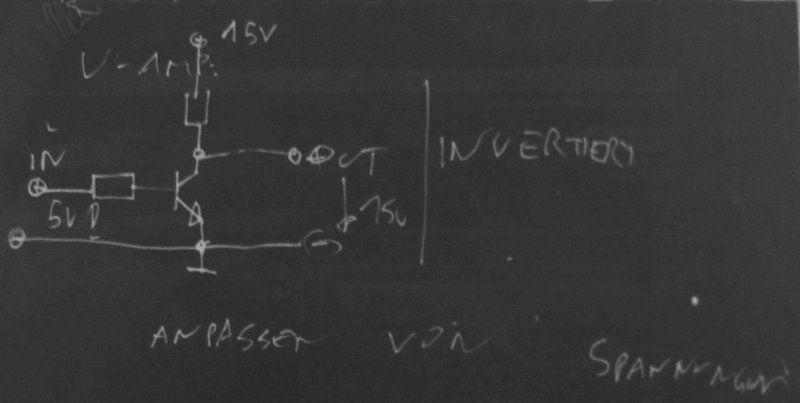 15V
V-AMP.
IN
OUT
5V
15V
INVERTIERT
ANPASSEN VON
SPANNUNGEN